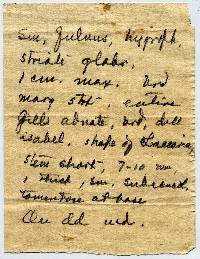 Sm, fulvus, hygroph,
striate glabr,
1 cm. max. brd
marg str, entire
gills adnate, brd, dull
isabel, shape of Laccaria,
stem short, 7-10 mm,
1 thick, sm, subconcol,
tomentose at base
On old wd.